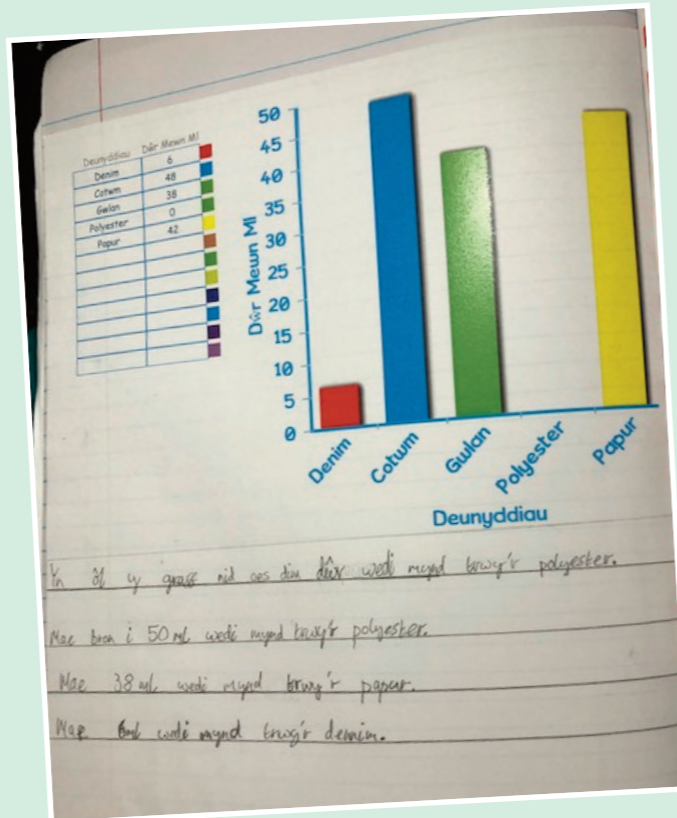 Deunyddiau Dŵr Mewn Ml
Denim 6
Cotwm 48
Gwlan 38
Polyester 0
Papur 42
50
45
40
35
30
25
20
15
10
5
0
Dŵr Mewn Ml
Denim
Cotwm
Gwlan
Polyester
Papur
Deunyddiau
Yn ôl y graff nid oes dim dŵr wedi mynd trwy'r polyester.
Mae bron i 50 ml wedi mynd trwy'r polyester.
Mae 38 ml wedi mynd trwy'r papur.
Mae 6ml wedi mynd trwy'r denim.